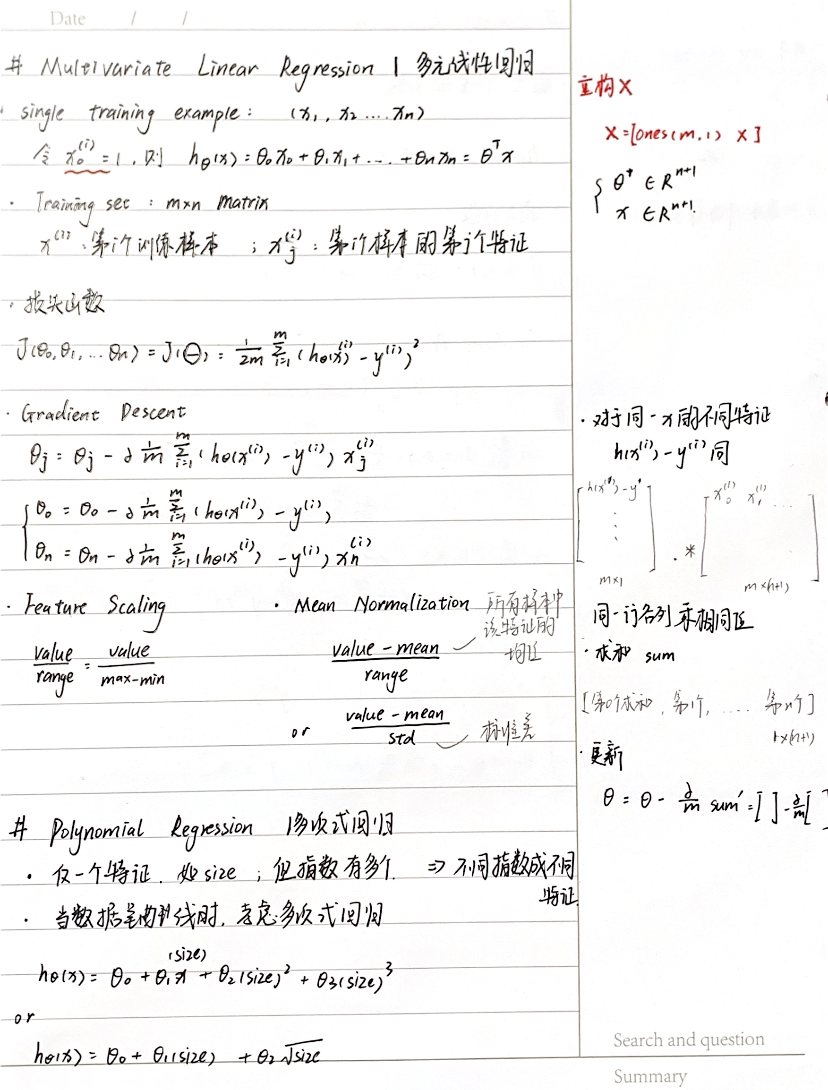 Date / /
# Multivariate Linear Regression | 多元线性回归
· single training example: (x₁, x₂ .... xₙ)
令 x₀⁽ⁱ⁾ = 1, 则 hθ(x) = θ₀x₀ + θ₁x₁ + ... + θₙxₙ = θᵀx
· Training set : m×n matrix
x⁽ⁱ⁾: 第i个训练样本 ; xⱼ⁽ⁱ⁾: 第i个样本的第j个特证
· 损失函数
J(θ₀, θ₁, ... θₙ) = J(Θ) = 1/2m Σᵢ₌₁ᵐ (hθ(x⁽ⁱ⁾) - y⁽ⁱ⁾)²
· Gradient Descent
θⱼ = θⱼ - ∂ 1/m Σᵢ₌₁ᵐ (hθ(x⁽ⁱ⁾) - y⁽ⁱ⁾) xⱼ⁽ⁱ⁾
{ θ₀ = θ₀ - ∂ 1/m Σᵢ₌₁ᵐ (hθ(x⁽ⁱ⁾) - y⁽ⁱ⁾)
θₙ = θₙ - ∂ 1/m Σᵢ₌₁ᵐ (hθ(x⁽ⁱ⁾) - y⁽ⁱ⁾) xₙ⁽ⁱ⁾
· Feature Scaling
value/range = value/max-min
· Mean Normalization
value - mean / range
所有样本中
该特证的
均值
or value - mean / std
标准差
# Polynomial Regression | 多项式回归
· 仅一个特证. 如 size ; 但指数有多个. ⇒ 不同指数成不同
特证
· 当数据呈曲线时, 考虑多项式回归
(size)
hθ(x) = θ₀ + θ₁x + θ₂(size)² + θ₃(size)³
or
hθ(x) = θ₀ + θ₁(size) + θ₂√size
重构X
X = [ones(m,1) X]
{ θ⁺ ∈ Rⁿ⁺¹
x ∈ Rⁿ⁺¹
· 对于同一x的不同特证
h(x⁽ⁱ⁾) - y⁽ⁱ⁾ 同
[h(x) - y ⋮] .* [x₀⁽¹⁾ x₁⁽¹⁾ ...]
m×1 m×(n+1)
同一行各列乘相同值
· 求和 sum
[第0个求和, 第1个, .... 第n个]
1×(n+1)
· 更新
θ = θ - ∂/m sum' = [ ] - ∂/m [ ]
Search and question
Summary